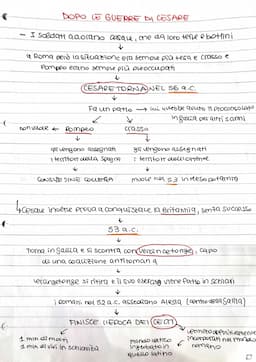 DOPO LE GUERRE DI CESARE
- I soldati adorano cesare, che dà loro terre e bottini
a Roma però la situazione era sempre più tesa e crasso e
Pompeo erano sempre più preoccupati
CESARE TORNA NEL 56 a.C.
Fa un patto → lui avrebbe avuto il proconsolato
in gallia per altri 5 anni
Pompeo
crasso
gli vengono assegnati
i territori della Spagna
gli vengono assegnati
i territori dell'oriente
CONSOLE SINE COLLEGA
muore nel 53 in mesopotamia
↳ Cesare inoltre prova a conquistare la Britannia, senza successo
53 a.C.
Torna in gallia e si scontra con Vercingetorige, capo
di una coalizione antiromana
Vercingetorige si ritira e il suo esercito viene fatto in schiavi
i romani nel 52 a.C. assediano Alesia
FINISCE L'EPOCA DEI CELTI
1 mln di morti
1 mln di vivi in schiavitù
mondo celtico
quello latino
romano